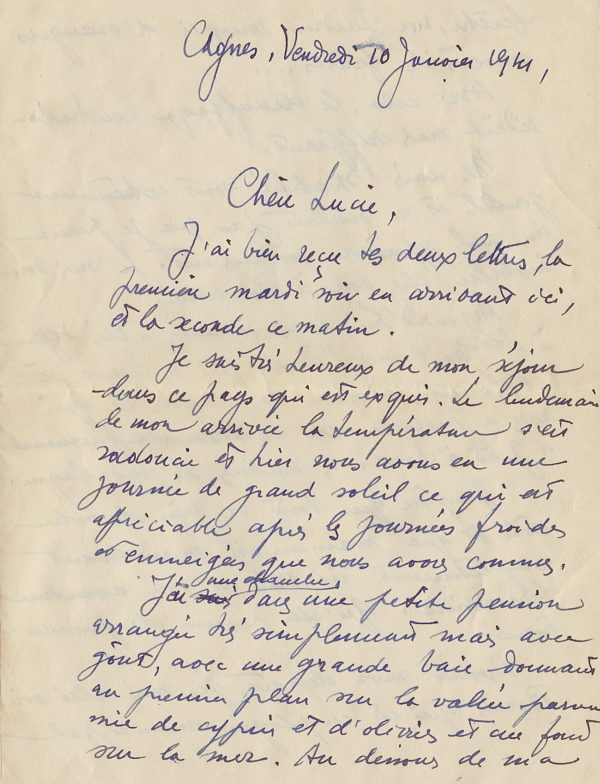 Cagnes, Vendredi 10 Janvier 1941,
Chère Lucie,
J'ai bien reçu tes deux lettres, la
première mardi soir en arrivant ici,
et la seconde ce matin.
Je suis très heureux de mon séjour
dans ce pays qui est exquis. Le lendemain
de mon arrivée la température s'est
radoucie et hier nous avons eu une
journée de grand soleil ce qui est
appréciable après les journées froides
et enneigées que nous avons connues.
une chambre,
J'ai dans une petite pension
arrangée très simplement mais avec
goût, avec une grande baie donnant
au premier plan sur la vallée parse
mée de cyprès et d'oliviers et au fond
sur la mer. Au dessous de ma